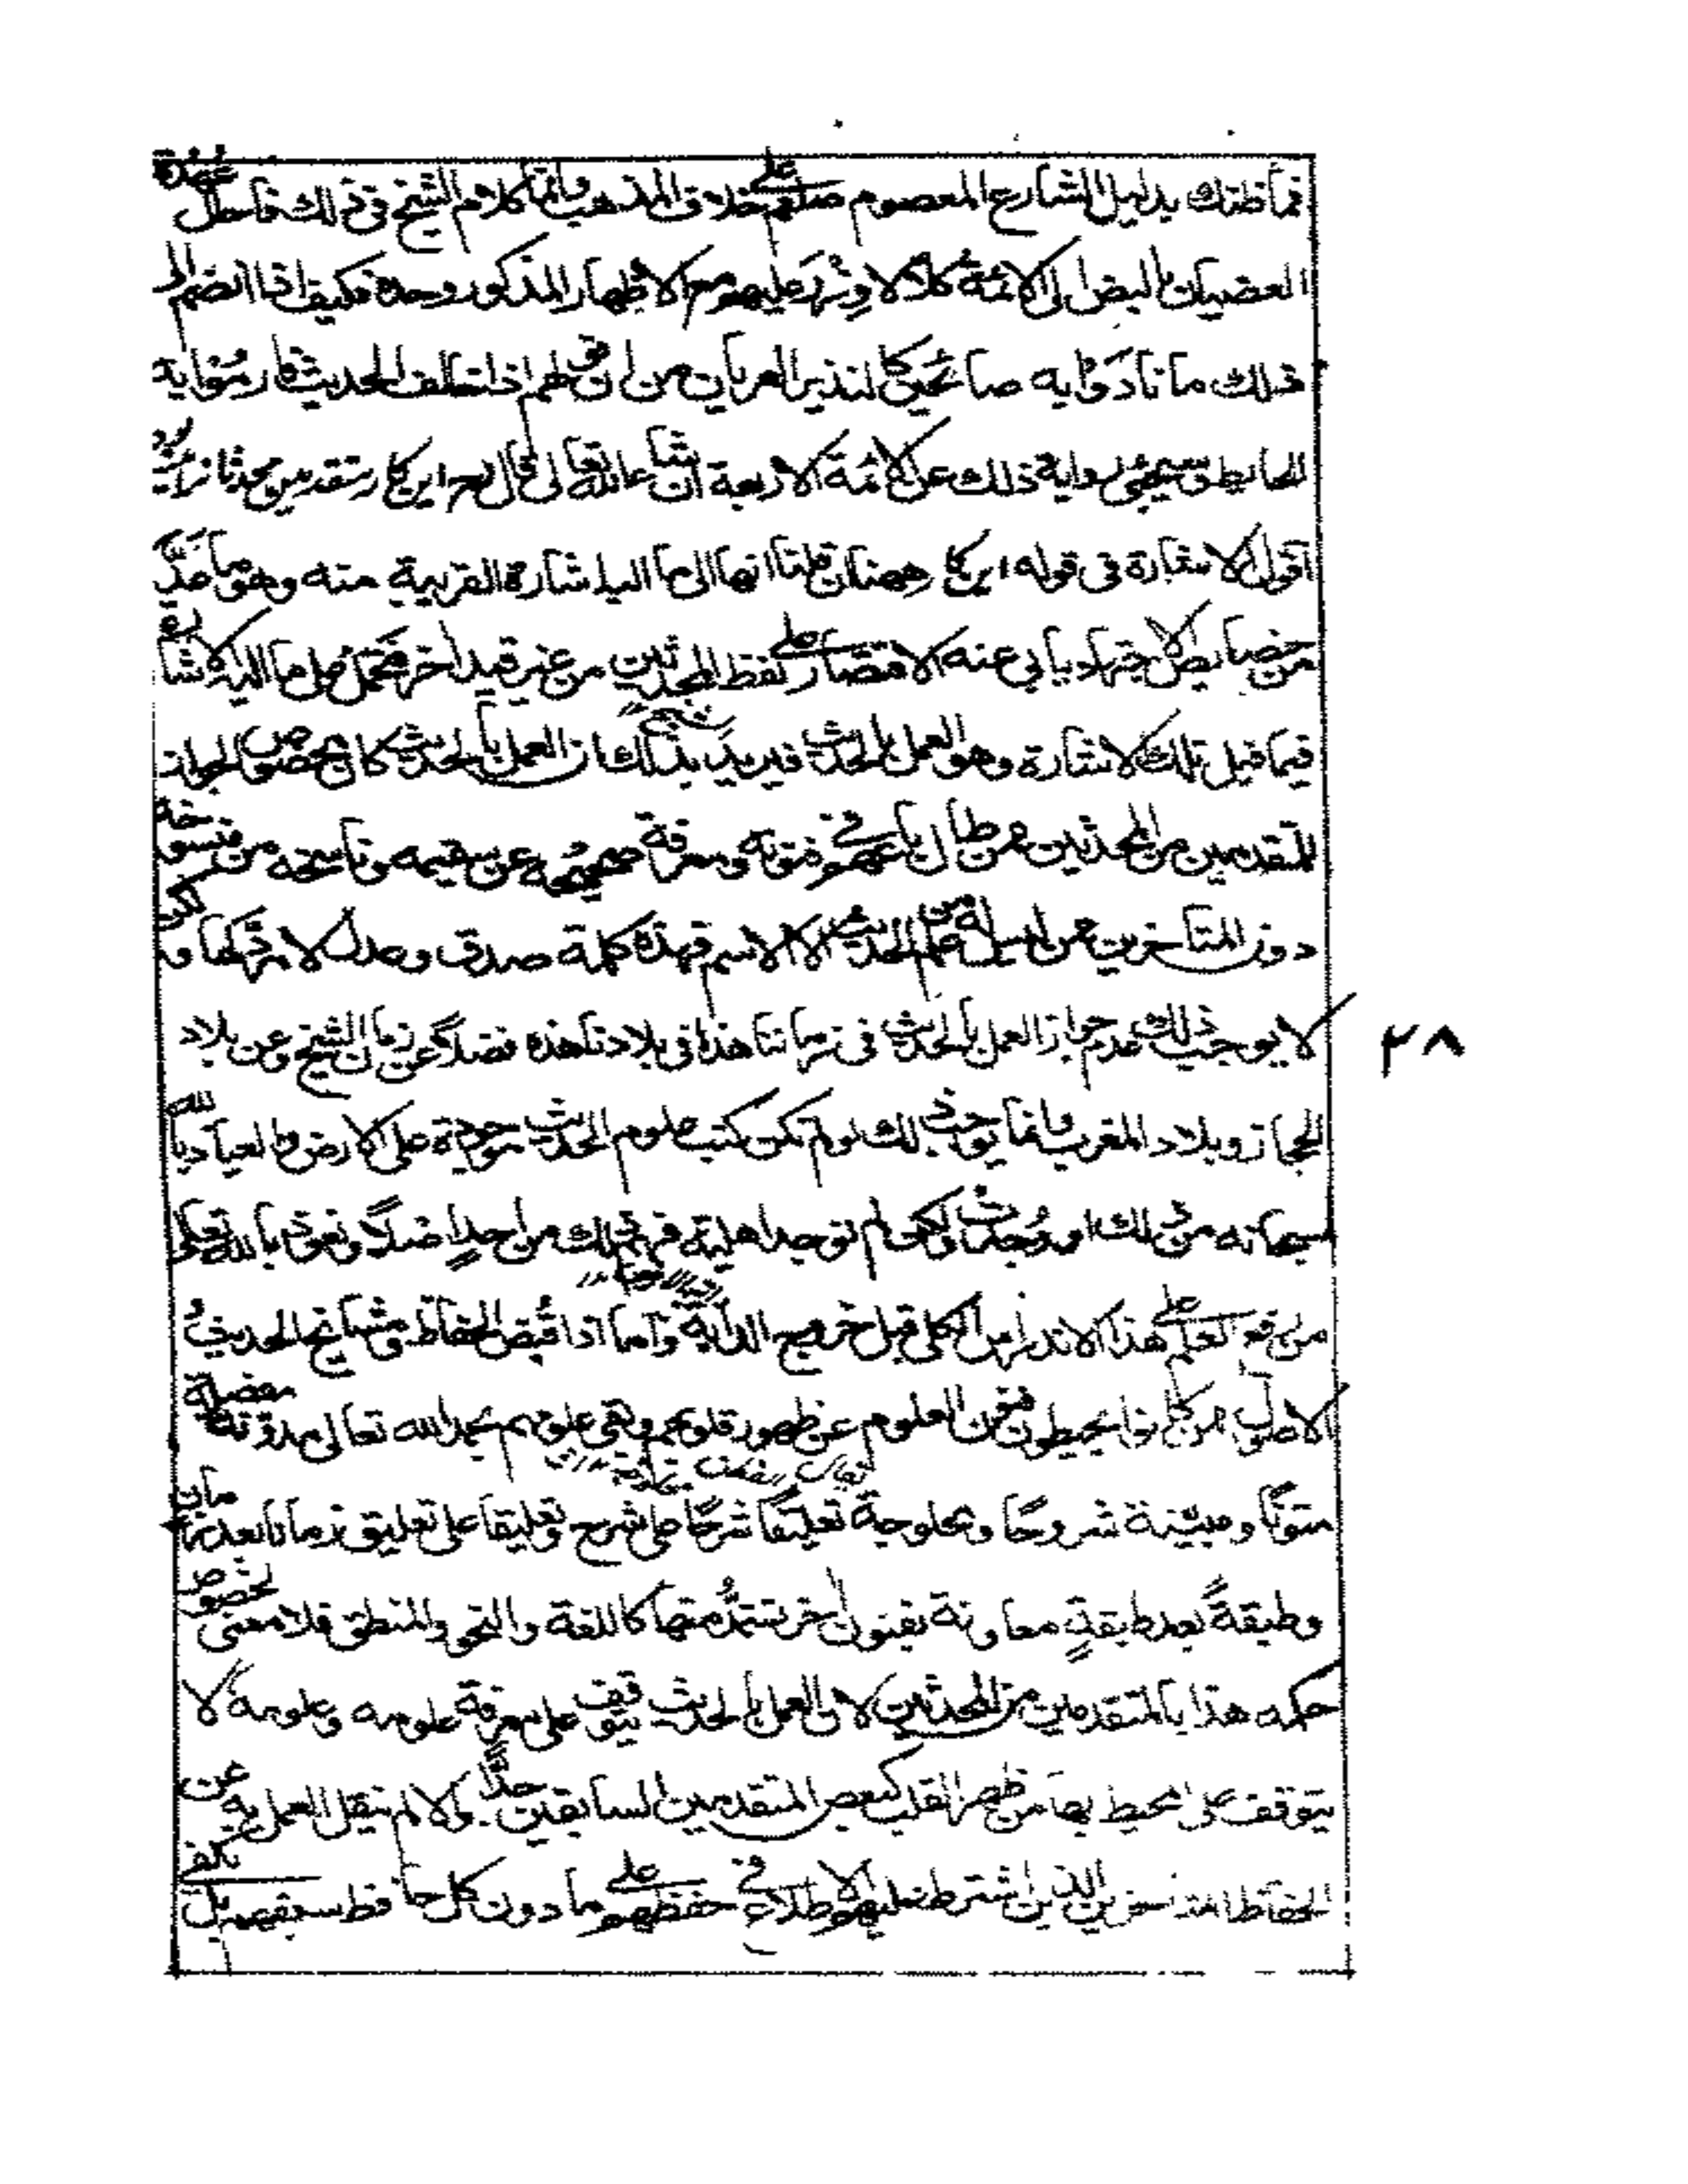 فما ظنك بدليل الشارع المعصوم صلعم على خلاف المذهب وانما كلام الشيخ في ذلك فاحمل عهدة
العصيان البض الى الائمة كلا لا وزر عليهم مع الاظهار المذكور وحده فكيف اذا انضم الى
ذلك ما نادوا به صائحين كالنذير العريان من ان قولهم اذا خالف الحديث فارموا به
الحائط وسيجئ رواية ذلك عن الائمة الاربعة ان شاء الله تعالى قال نعم اين كار متقدمين محدثانرا
اقول الاشارة في قوله اين كار ههنا ان قلنا انها الى ما اليه اشارة القريبة منه وهو ما عد
من خصايص الاجتهاد يابى عنه الاقتصار على لفظ المحدثين من غير قيد اخر فتحمل على ما اليه الاشارة
فيما قبل تلك الاشارة وهو العمل بالحديث فيريد الشيخ بذلك ان العمل بالحديث كان مخصوص الجواز
للمتقدمين من المحدثين ممن طال باعهم في فنونه ومعرفة صحيحه عن سقيمه وناسخه من منسوخه
دون المتاخرين ممن ليس له من علم الحديث الا الاسم فهذه كلمة صدق وعدل لا نتركها ولكن
لا يوجب ذلك عدم جواز العمل بالحديث في زماننا هذا في بلادنا هذه فضلا عن زمان الشيخ وعن بلاد
الحجاز وبلاد المغرب وانما يوجب ذلك لو لم تكن كتب علوم الحديث موجودة على الارض والعياذ بالله
سبحانه من ذلك او وجدت ولكن لم توجد اهلية فهم تلك من احد اصلا ونعوذ بالله تعالى
من رفع العلم على هذا الاندراس الكلي قبل خروج الدابة واما اذا قبض الحفاظ ومشايخ الحديث
الاطواب من كانوا يحيطون فنون العلوم عن ظهور قلوبهم وبقى علومهم بحمد الله تعالى مدونة مفصلة
متونا ومبينة شروحا ومحلوجة تعليقا شرحا على شرح وتعليقا على تعليق زمانا بعد زمان
وطبقة بعد طبقة معاونة بفنون اخر تستمد منها كاللغة والنحو والمنطق فلا معنى لخصوص
حكمه هذا بالمتقدمين من المحدثين لان العمل بالحديث يتوقف على معرفة علومه وعلومه لا
يتوقف على المحيط بها من ظهر القلب كبعض المتقدمين السابقين جدا والا لم ينقل العمل به عن
الحفاظ المتاخرين الذين اشترط عليهم الاطلاع في حفظهم على ما دون كل حافظ سبقهم بل نكفى
٢٨